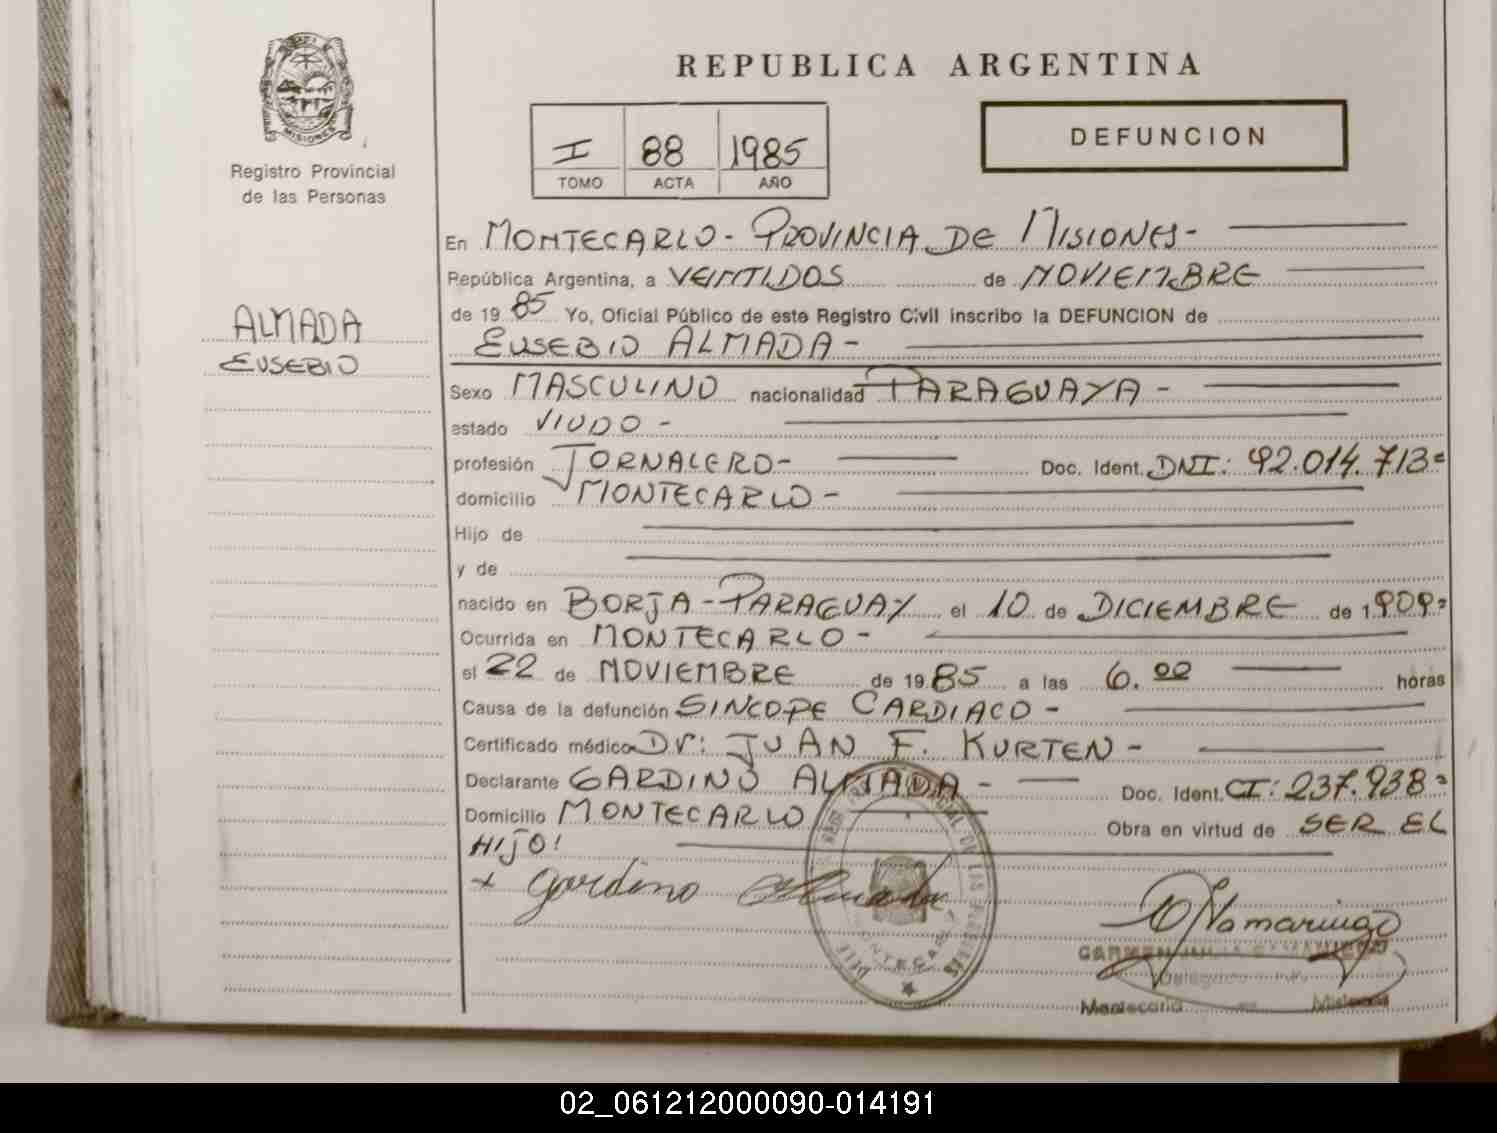 REPUBLICA ARGENTINA
MISIONES
Registro Provincial
de las Personas
I 88 1985
TOMO ACTA AÑO
DEFUNCION
ALMADA
EUSEBIO
En MONTECARLO - PROVINCIA DE MISIONES -
República Argentina, a VEINTIDOS de NOVIEMBRE
de 1985 Yo, Oficial Público de este Registro Civil inscribo la DEFUNCION de
EUSEBIO ALMADA -
Sexo MASCULINO nacionalidad PARAGUAYA -
estado VIUDO -
profesión JORNALERO - Doc. Ident. DNI: 92.014.713=
domicilio MONTECARLO -
Hijo de
y de
nacido en BORJA - PARAGUAY el 10 de DICIEMBRE de 1909=
Ocurrida en MONTECARLO -
el 22 de NOVIEMBRE de 1985 a las 6.00 horas
Causa de la defunción SINCOPE CARDIACO -
Certificado médico Dr: JUAN F. KURTEN -
Declarante GARDINO ALMADA - Doc. Ident. CI: 237.938=
Domicilio MONTECARLO Obra en virtud de SER EL
HIJO!
+ Gardino Almada
CARMEN JULIA
Montecarlo Misiones
02_061212000090-014191